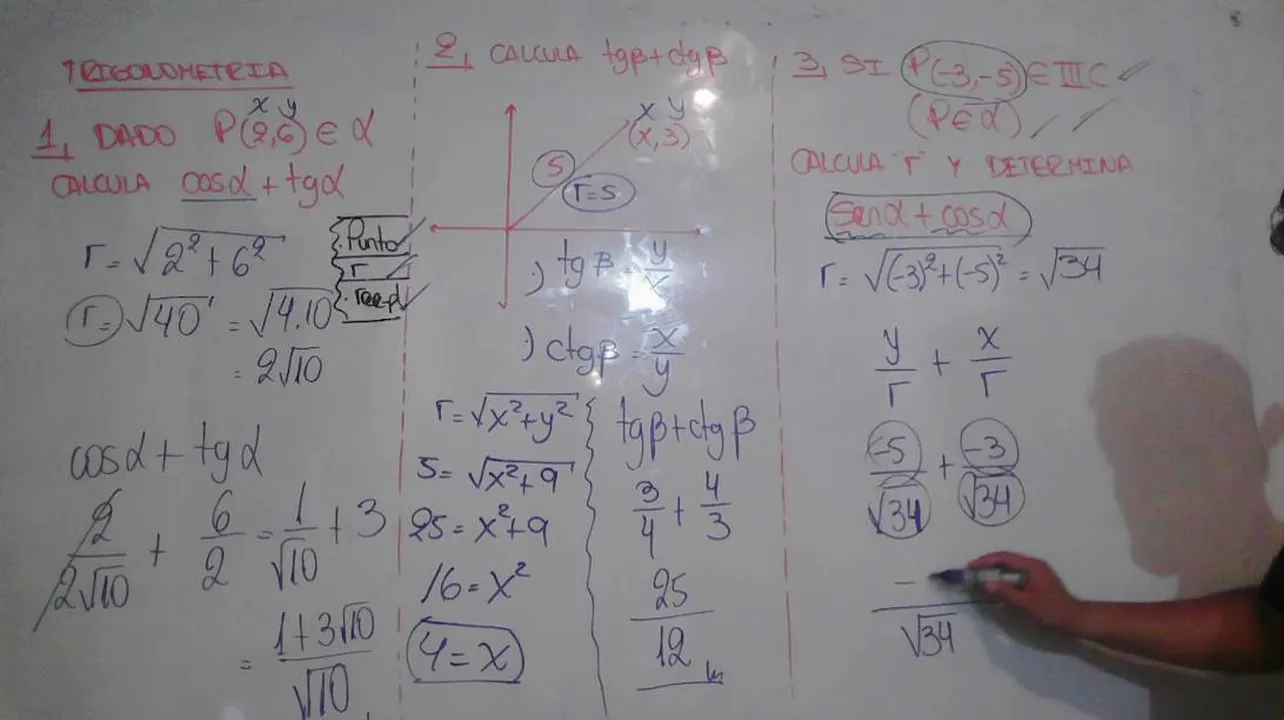 TRIGONOMETRIA
x y
1, DADO P(2,6) ∈ α
CALCULA cosα + tgα
r = √2² + 6²
r = √40 = √4.10
= 2√10
. Punto
. r
cosα + tgα
2/2√10 + 6/2 = 1/√10 + 3
= 1+3√10/√10
2, CALCULA tgβ + ctgβ
x y
(x, 3)
5
r=5
·) tgβ = y/x
·) ctgβ = x/y
r = √x²+y²
5 = √x²+9
25 = x²+9
16 = x²
4 = x
tgβ + ctgβ
3/4 + 4/3
25/12
3, SI P(-3,-5) ∈ IIIC
(P∈α)
CALCULA "r" Y DETERMINA
senα + cosα
r = √(-3)²+(-5)² = √34
y/r + x/r
-5/√34 + -3/√34
-/√34